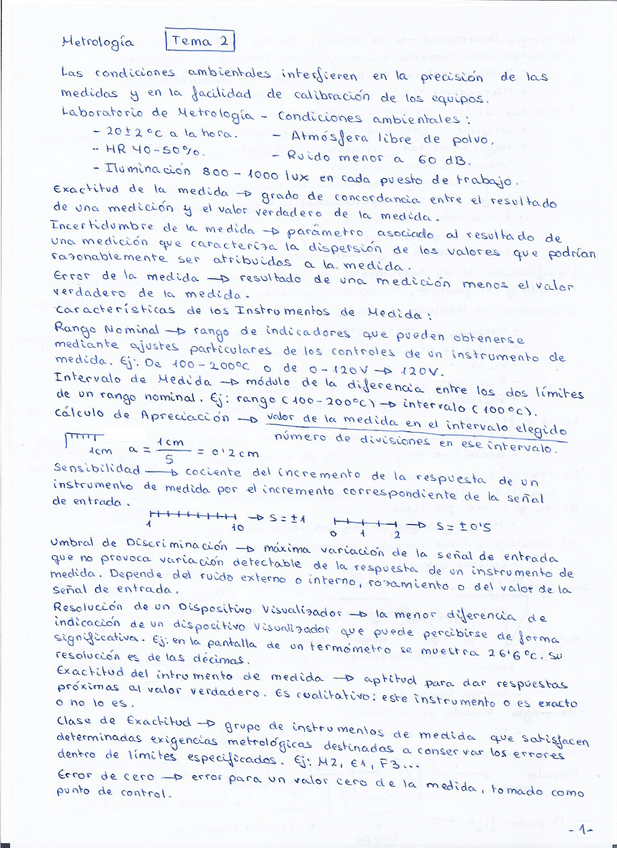 Metrología Tema 2
Las condiciones ambientales interfieren en la precisión de las
medidas y en la facilidad de calibración de los equipos.
Laboratorio de Metrología - Condiciones ambientales:
- 20±2ºC a la hora. - Atmósfera libre de polvo.
- HR 40-50%. - Ruido menor a 60 dB.
- Iluminación 800 - 1000 lux en cada puesto de trabajo.
Exactitud de la medida → grado de concordancia entre el resultado
de una medición y el valor verdadero de la medida.
Incertidumbre de la medida → parámetro asociado al resultado de
una medición que caracteriza la dispersión de los valores que podrían
razonablemente ser atribuidos a la medida.
Error de la medida → resultado de una medición menos el valor
verdadero de la medida.
Características de los Instrumentos de Medida:
Rango Nominal → rango de indicadores que pueden obtenerse
mediante ajustes particulares de los controles de un instrumento de
medida. Ej: De 100-200ºC o de 0-120V → 120V.
Intervalo de Medida → módulo de la diferencia entre los dos límites
de un rango nominal. Ej: rango (100-200ºC) → intervalo (100ºC).
Cálculo de Apreciación → valor de la medida en el intervalo elegido
número de divisiones en ese intervalo.
1cm a = 1cm / 5 = 0'2 cm
Sensibilidad → cociente del incremento de la respuesta de un
instrumento de medida por el incremento correspondiente de la señal
de entrada.
1 10 → S=±1 0 1 2 → S=±0'5
Umbral de Discriminación → máxima variación de la señal de entrada
que no provoca variación detectable de la respuesta de un instrumento de
medida. Depende del ruido externo o interno, rozamiento o del valor de la
señal de entrada.
Resolución de un Dispositivo Visualizador → la menor diferencia de
indicación de un dispositivo visualizador que puede percibirse de forma
significativa. Ej: en la pantalla de un termómetro se muestra 26'6ºC. Su
resolución es de las décimas.
Exactitud del intrumento de medida → aptitud para dar respuestas
próximas al valor verdadero. Es cualitativo: este instrumento o es exacto
o no lo es.
Clase de Exactitud → grupo de instrumentos de medida que satisfacen
determinadas exigencias metrológicas destinadas a conservar los errores
dentro de límites especificados. Ej: M2, E1, F3...
Error de cero → error para un valor cero de la medida, tomado como
punto de control.
-1-